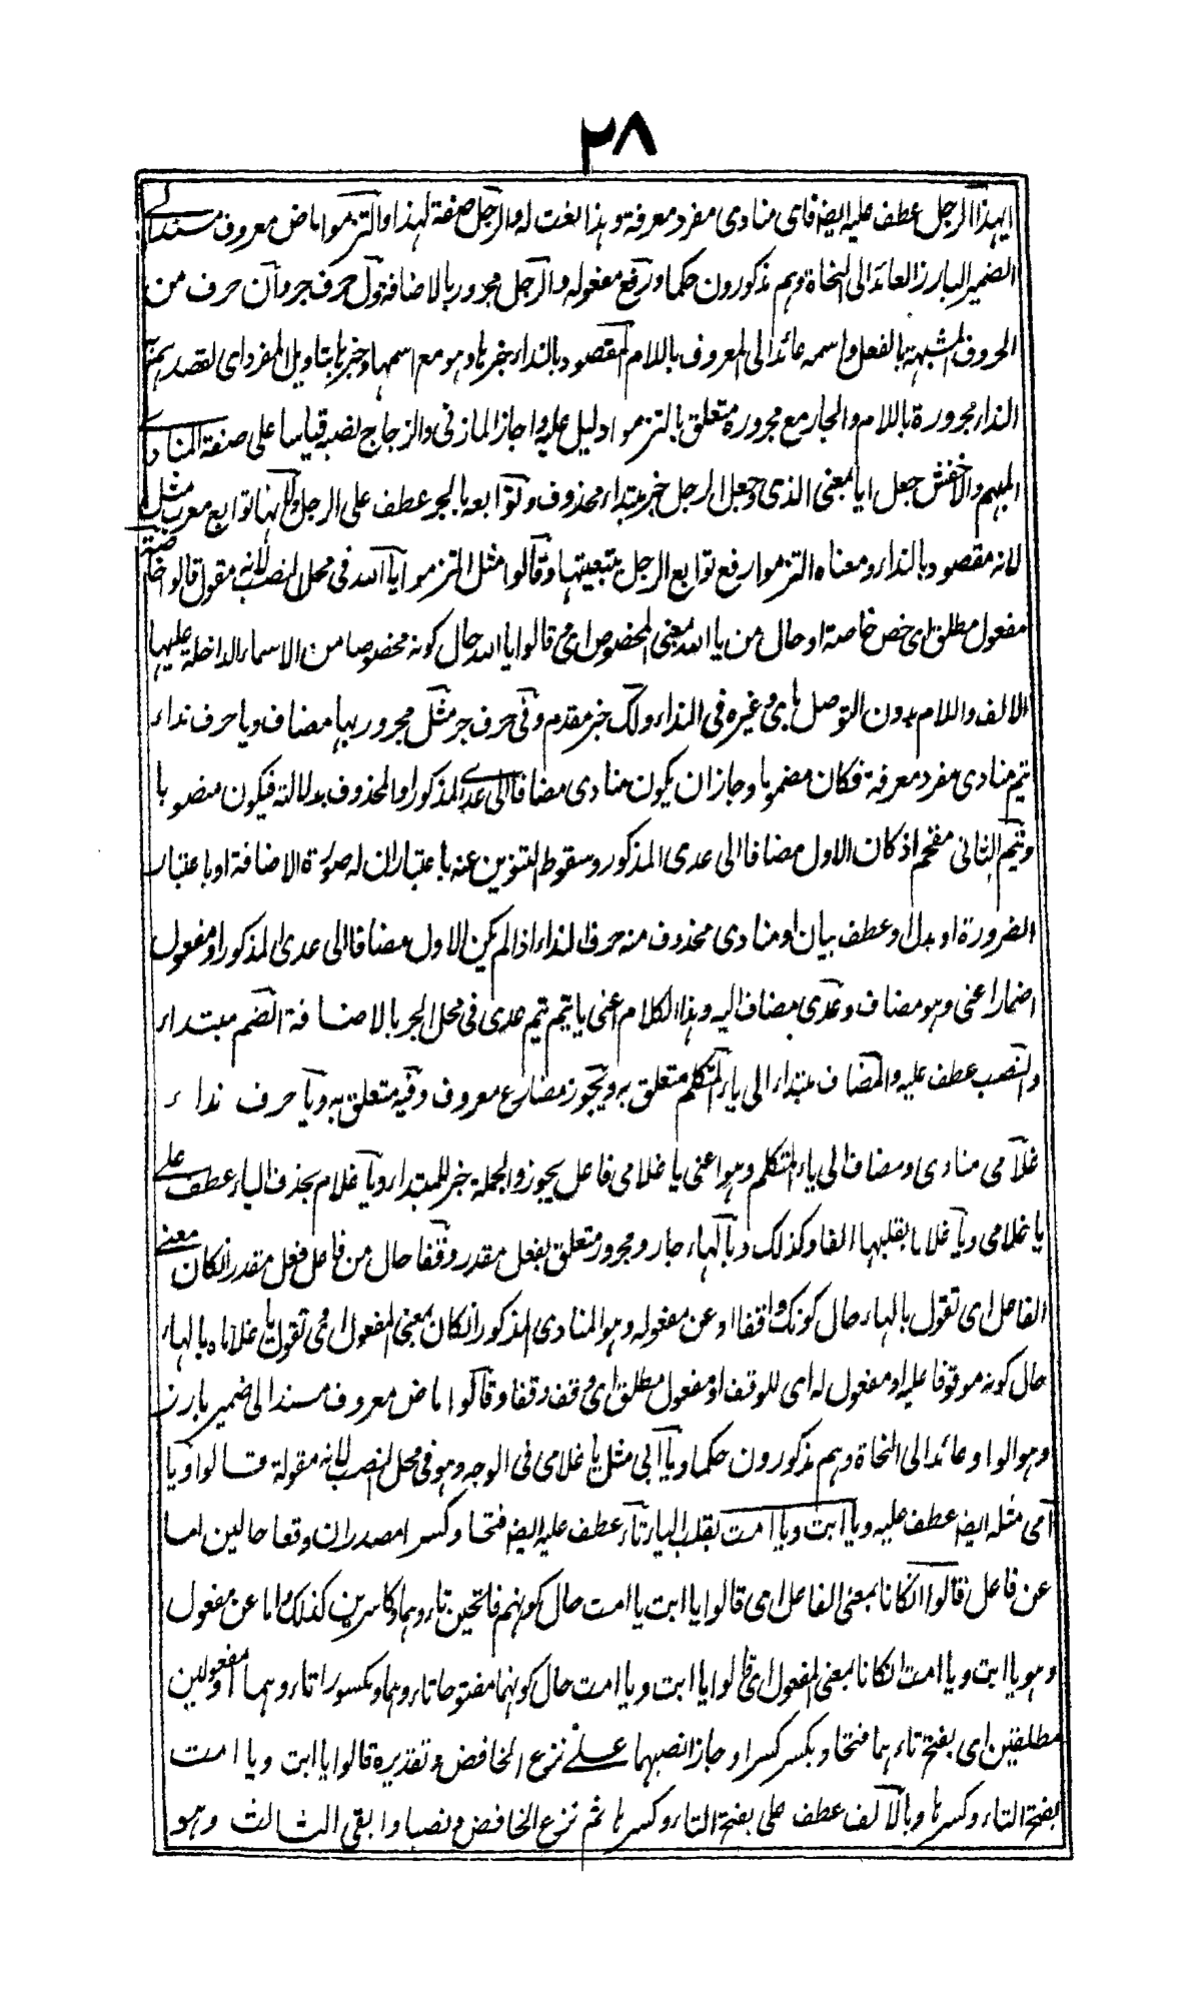 ٢٨
ايهذا الرجل عطف عليه ايضا فاى منادى مفرد معرفة وهذا نعت له والرجل صفة لهذا والتزموا ماض معروف مسند الى
الضمير البارز العائد الى النحاة وهم مذكورون حكما ورفع مفعوله والرجل مجرور بالاضافة ول حرف جر وان حرف من
الحروف المشبهة بالفعل واسمه عائد الى المعروف باللام المقصود بالنداء خبرها وهو مع اسمها وخبرها بتاويل المفرد اى لقصديته
النداء مجرورة باللام والجار مع مجروره متعلق بالتزموا دليل عليه واجاز المازنى والزجاج نصبه قياسا على صفة المنادى
المبهم والاخفش جعل ايا بمعنى الذى وجعل الرجل خبر مبتداء محذوف وتوابعه بالجر عطف على الرجل ولانها توابع معرب مثل
لانه مقصود بالنداء ومعناه التزموا رفع توابع الرجل بتبعيتها وقالوا مثل التزموا يا الله فى محل النصب لانه مقول قالوا خاصة
مفعول مطلق اى خص خاصة او حال من يا الله بمعنى المخصوص اى قالوا يا الله حال كونه مخصوصا من الاسماء الداخلة عليها
الالف واللام بدون التوصل باى وغيره فى النداء ولك خبر مقدم وفى حرف جر مثل مجرور بها مضاف ويا حرف نداء
تيم منادى مفرد معرفة فكان مضموما وجاز ان يكون منادى مضافا الى عدى المذكور او المحذوف بدلالته فيكون منصوبا
وتيم الثانى مقحم اذ كان الاول مضافا الى عدى المذكور وسقوط التنوين عنه باعتبار ان له صورة الاضافة او باعتبار
الضرورة او بدل وعطف بيان او منادى محذوف منه حرف النداء اذا لم يكن الاول مضافا الى عدى المذكور او مفعول
اضمار اعنى وهو مضاف وعدى مضاف اليه وهذا الكلام اعنى يا تيم تيم عدى فى محل الجر بالاضافة الضم مبتداء
والنصب عطف عليه والمضاف مبتداء الى ياء المتكلم متعلق به ويجوز مضارع معروف وفيه متعلق به ويا حرف نداء
غلامى منادى ومضاف الى ياء المتكلم وهو اعنى يا غلامى فاعل يجوز والجملة خبر للمبتداء ويا غلام بحذف الياء عطف على
يا غلامى ويا غلاما بقلبها الفا وكذلك وبالهاء جار ومجرور متعلق بفعل مقدر وقفا حال من فاعل فعل مقدر ان كان بمعنى
الفاعل اى تقول بالهاء حال كونك واقفا او عن مفعوله وهو المنادى المذكور ان كان بمعنى المفعول اى تقول يا غلاماه بالهاء
حال كونه موقوفا عليه او مفعول له اى للوقف او مفعول مطلق اى وقف وقفا وقالوا ماض معروف مسند الى ضمير بارز
وهو الواو عائد الى النحاة وهم مذكورون حكما ويا ابى مثل يا غلامى فى الوجه وهو فى محل النصب لانه مقولة قالوا ويا
امى مثله ايضا عطف عليه ويا ابت ويا امت بقلب الياء تاء عطف عليه ايضا فتحا وكسرا مصدران وقعا حالين اما
عن فاعل قالوا ان كانا بمعنى الفاعل اى قالوا يا ابت يا امت حال كونهم فاتحين تاءهما وكاسرين كذلك واما عن مفعول
وهو يا ابت ويا امت ان كانا بمعنى المفعول اى قالوا يا ابت ويا امت حال كونهما مفتوحا تاءهما ومكسورا تاءهما او مفعولين
مطلقين اى بفتح تاءهما فتحا وبكسر كسرا وجاز نصبهما على نزع الخافض وتقديره قالوا يا ابت ويا امت
بفتح التاء وكسرها وبالالف عطف على بفتح التاء وكسرها ثم نزع الخافض ونصبا وابقى الثالث وهو